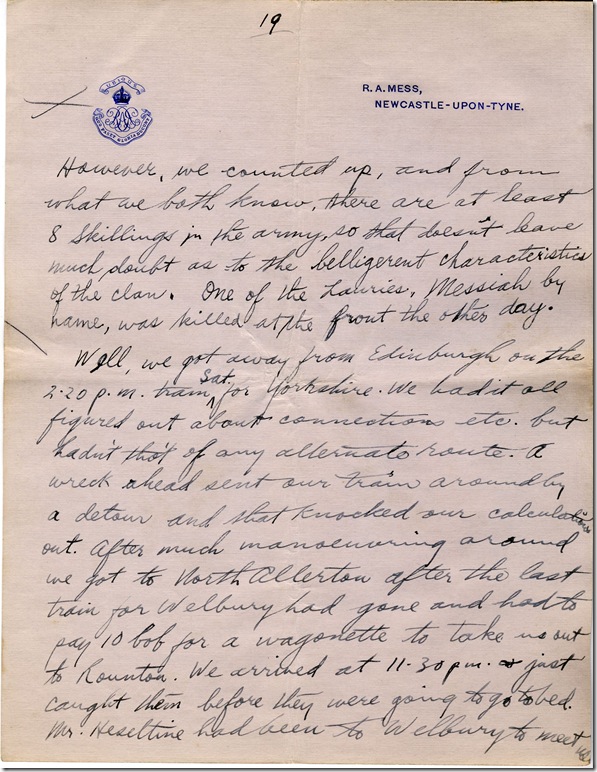 19
UBIQUE
QUO FAS ET GLORIA DUCUNT
R. A. MESS,
NEWCASTLE-UPON-TYNE.
However, we counted up, and from
what we both know, there are at least
8 Skillings in the army, so that doesn't leave
much doubt as to the belligerent characteristics
of the clan. One of the Lauries, Messiah by
name, was killed at the front the other day.
Well, we got away from Edinburgh on the
2.20 p.m. train Sat. for Yorkshire. We had it all
figured out about connections etc. but
hadn't tho't of any alternate route. A
wreck ahead sent our train around by
a detour and that knocked our calculations
out. After much manoeuvering around
we got to North Allerton after the last
train for Welbury had gone and had to
pay 10 bob for a wagonette to take us out
to Rounton. We arrived at 11.30 p.m. & just
caught them before they were going to go to bed.
Mr. Heseltine had been to Welbury to meet us